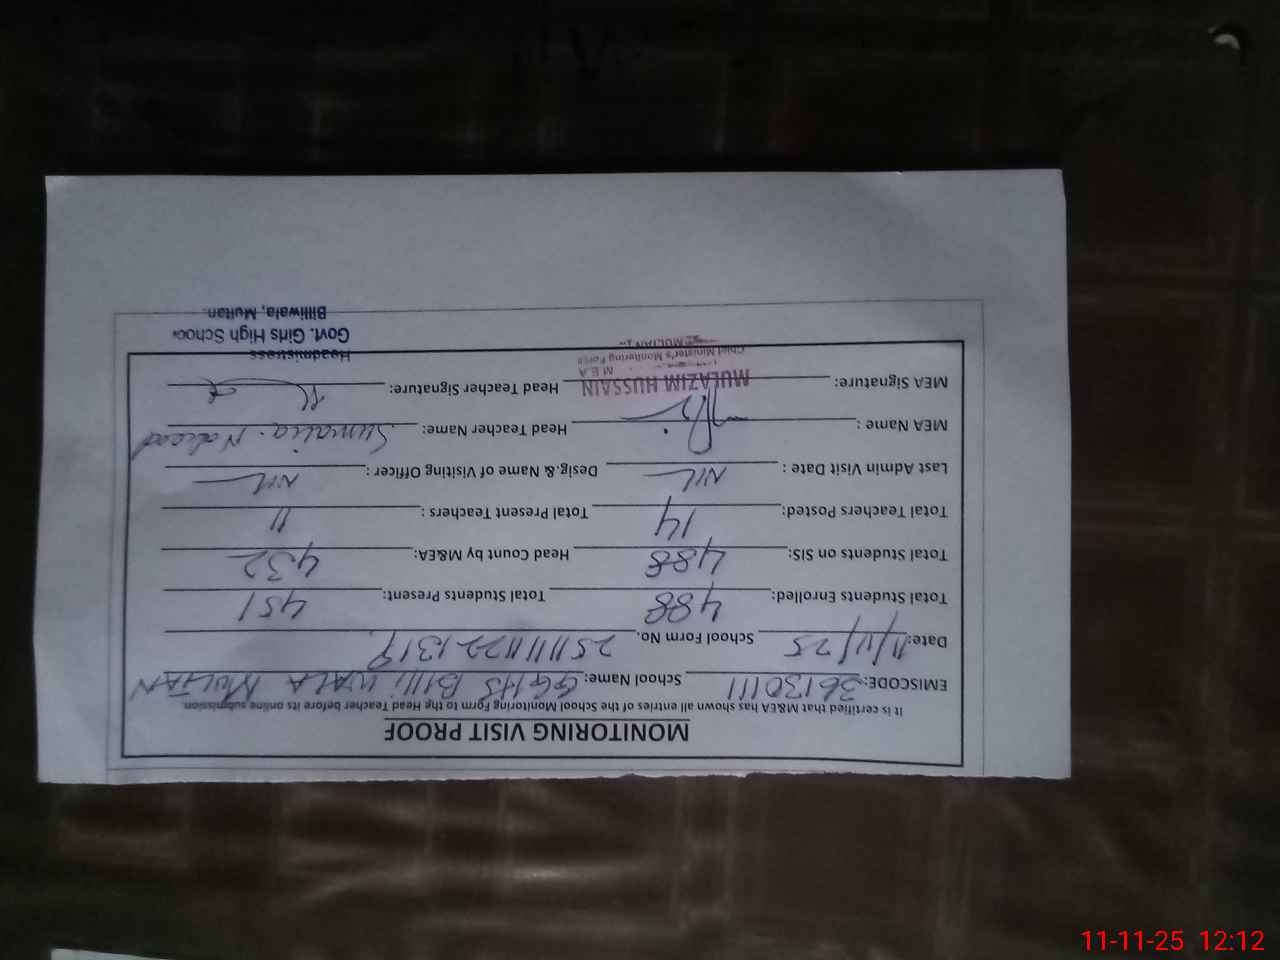 MONITORING VISIT PROOF
It is certified that M&EA has shown all entries of the School Monitoring Form to the Head Teacher before its online submission.
EMISCODE: 36130111 School Name: GGHS Billi WALA MULTAN
Date: 11/11/25 School Form No.
Total Students Enrolled: 488 Total Students Present: 451
Total Students on SIS: 488 Head Count by M&EA: 432
Total Teachers Posted: 14 Total Present Teachers : 11
Last Admin Visit Date : NIL Desig,&. Name of Visiting Officer : NIL
MEA Name : Head Teacher Name: Sumaiia
MEA Signature: Head Teacher Signature:
MULAZIM HUSSAIN
M E A
Chief Minister's Monitoring Force
MULTAN
Headmistress
Govt. Girls High School
Billiwala, Multan.
11-11-25 12:12